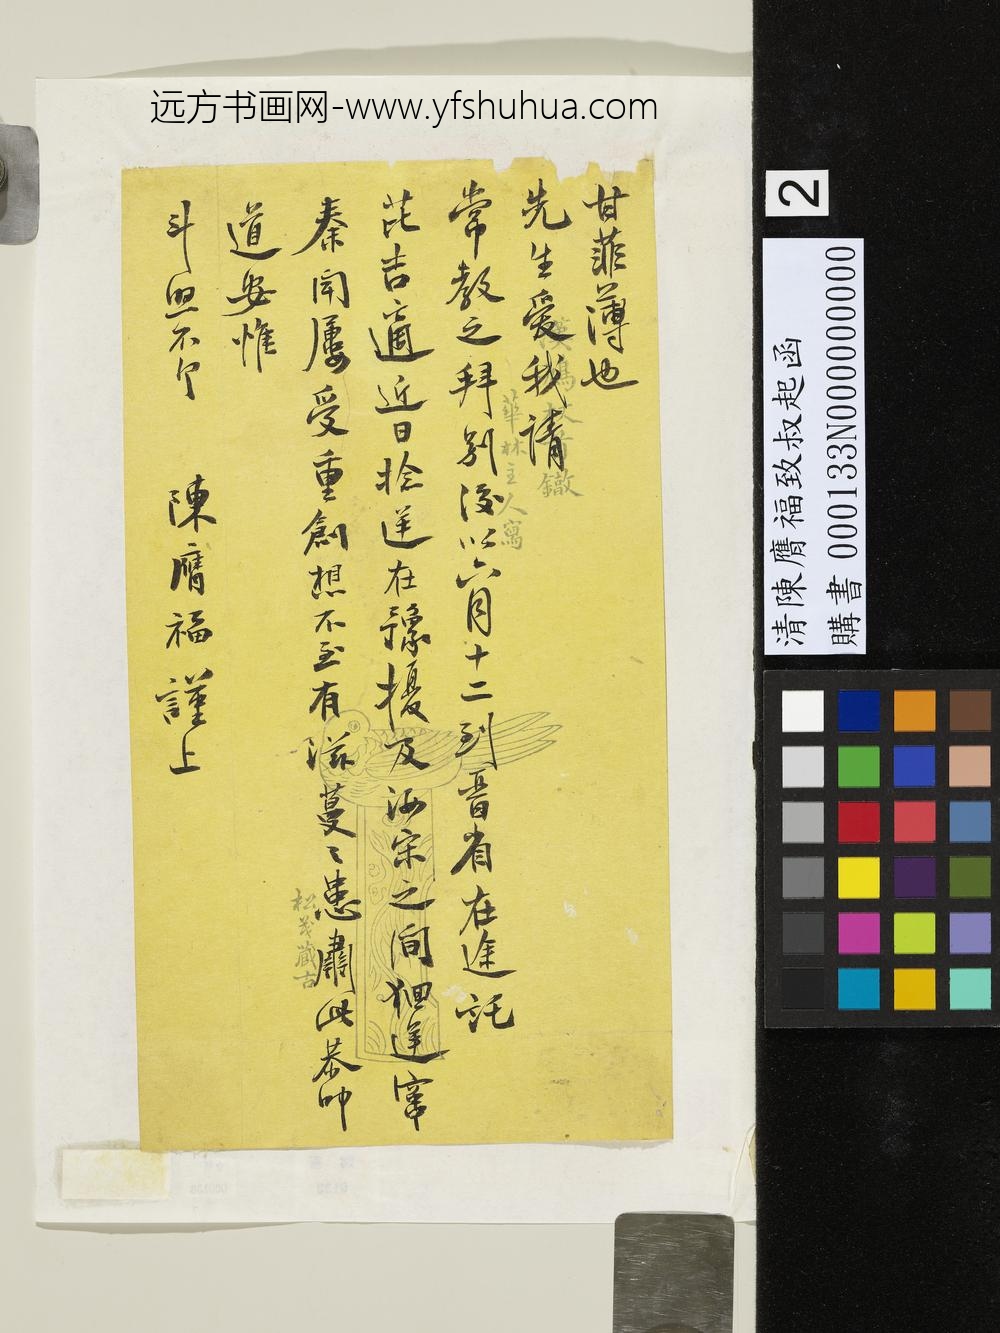 远方书画网-www.yfshuhua.com
甘菲薄也
先生爱我請
常教之拜別後以六月十二到晋省在途託
芘吉適近日捻逆在豫擾及汝宋之間狪逆窜
秦聞屢受重創想不至有滋蔓之患肅此恭叩
道安惟
斗照不宁
陳膺福謹上
華林主人寫
松茂藏古
2
清陳膺福致叔起函
購書 000133N000000000